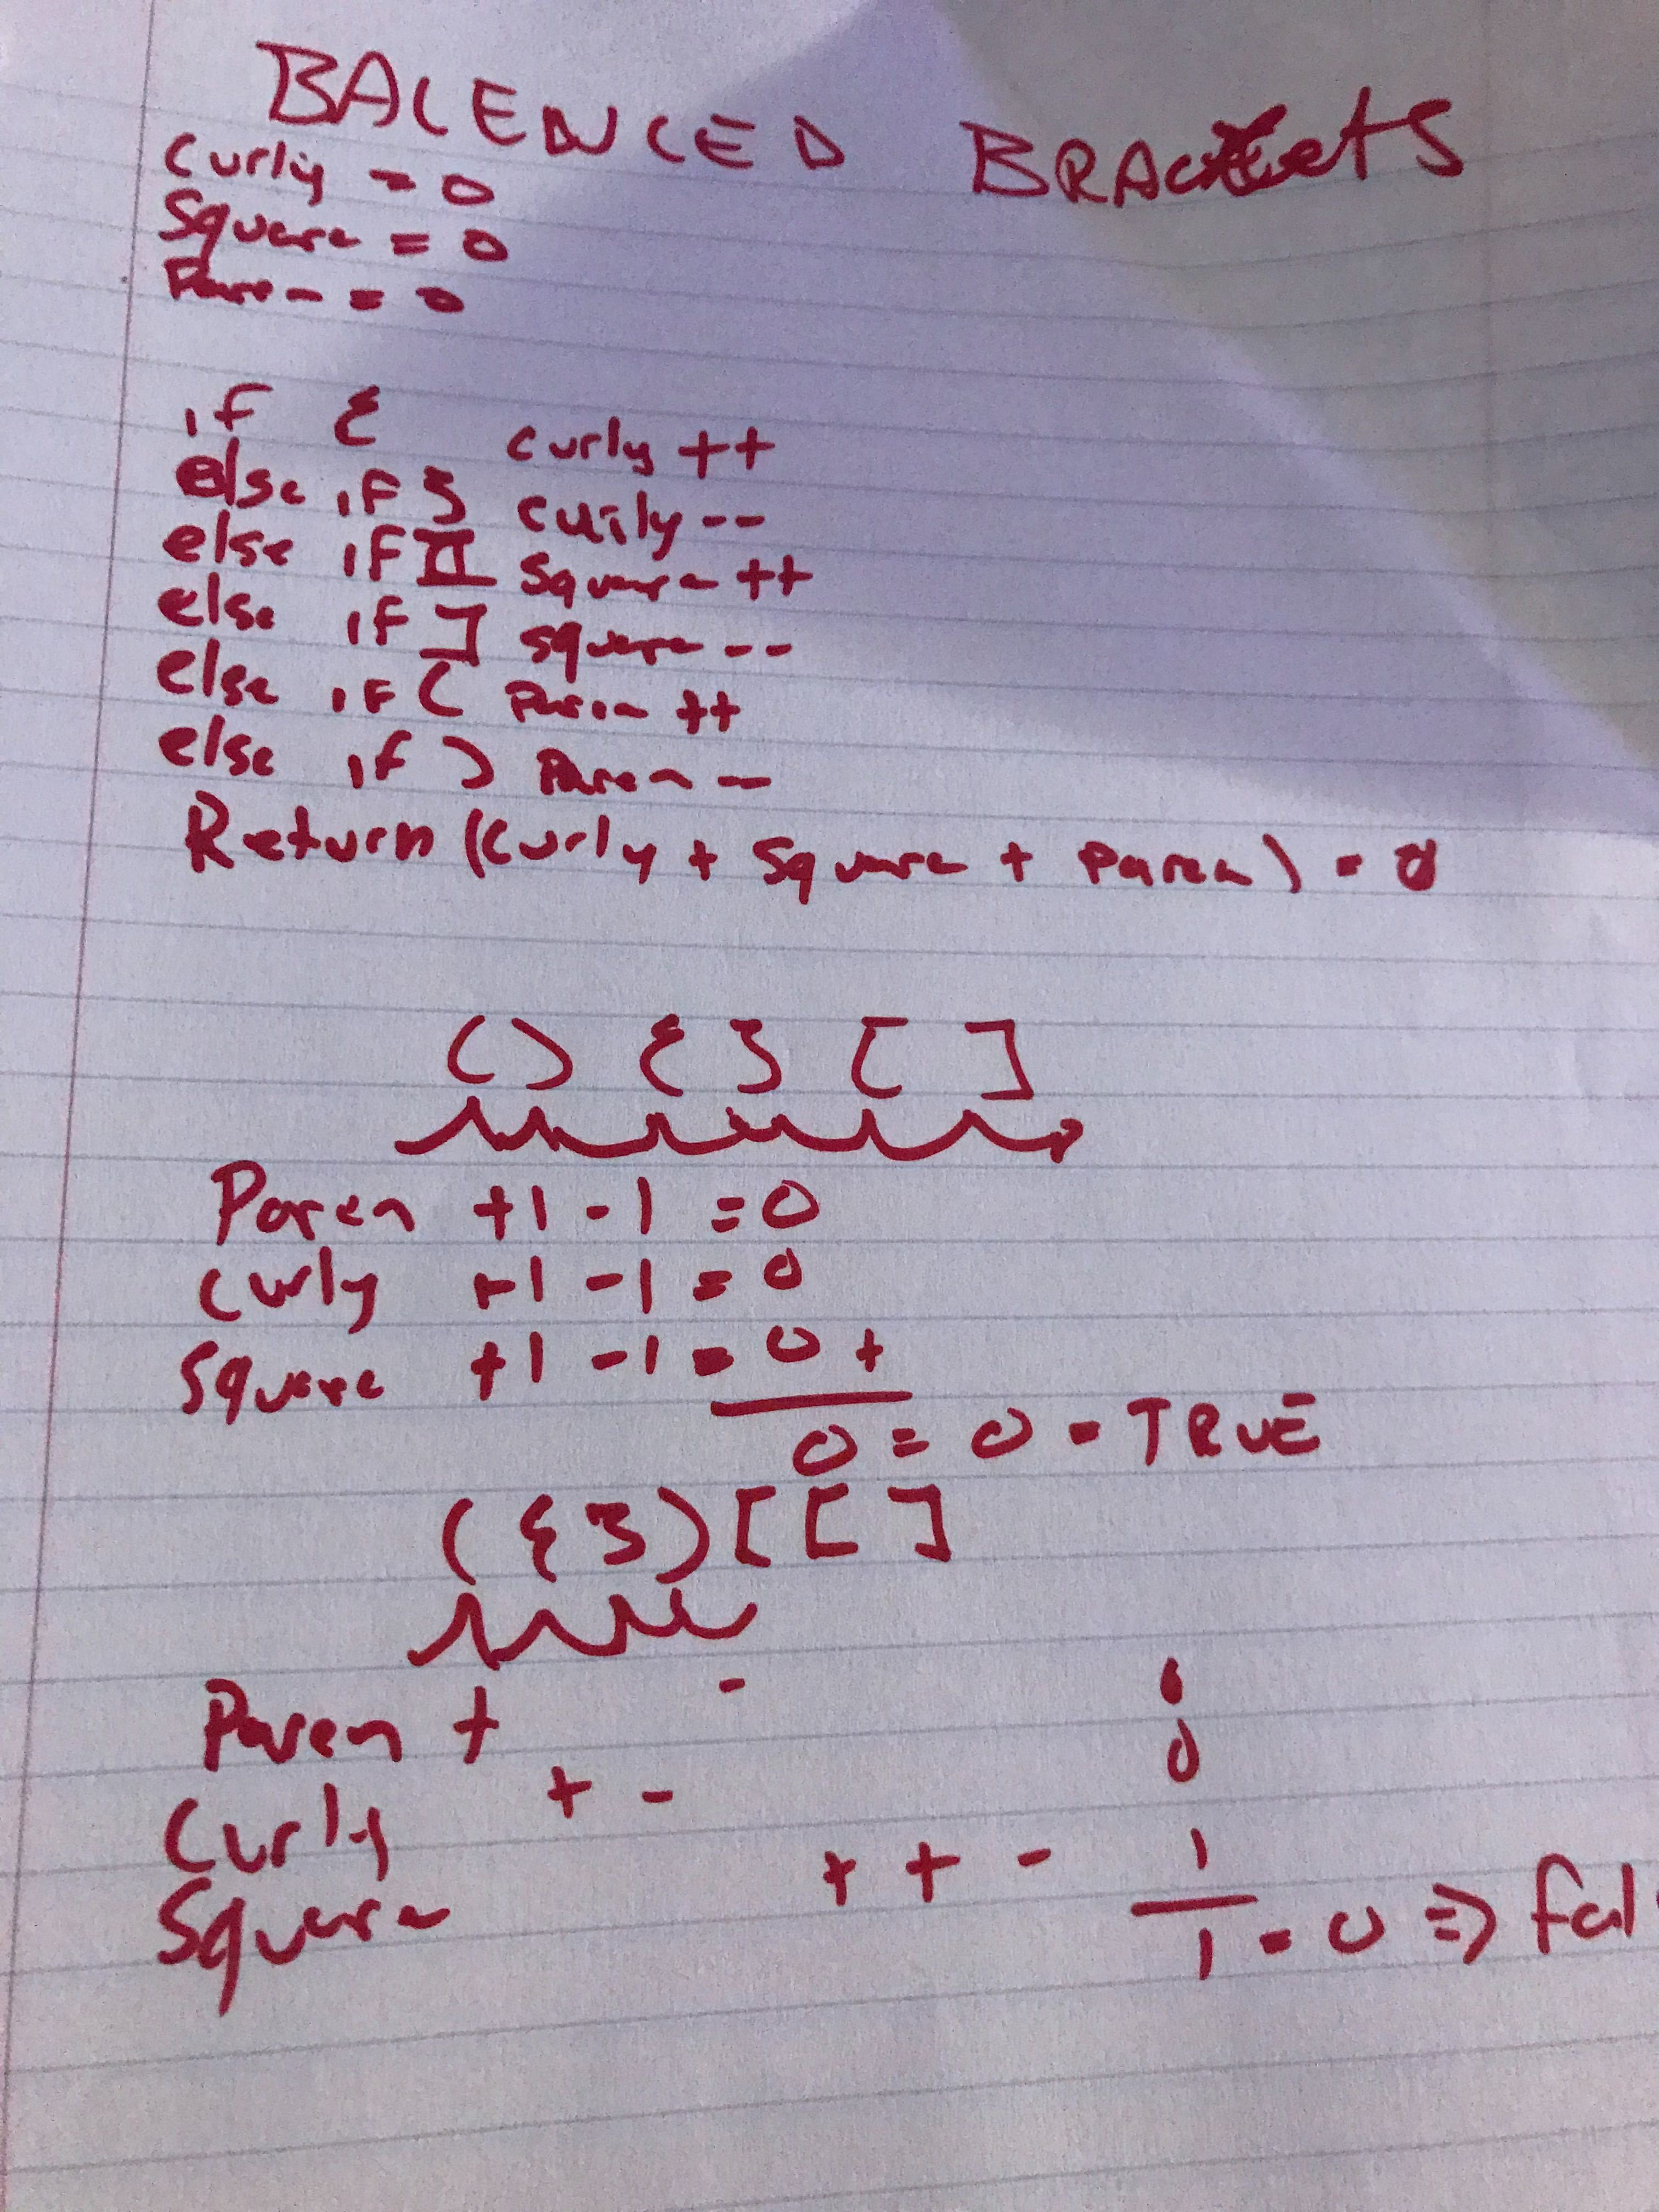 BALENCED BRACKets
Curly = 0
Square = 0
Paren = 0
if { curly ++
else if } curly --
else if [ Square ++
else if ] square --
else if ( Paren ++
else if ) Paren --
Return (Curly + Square + Paren) = 0
( ) { } [ ]
Paren +1 -1 = 0
Curly +1 -1 = 0
Square +1 -1 = 0 +
0 = 0 = TRUE
( { } ) [ [ ]
Paren + - 0
Curly + - 0
Square + + - 1
1 = 0 => fal